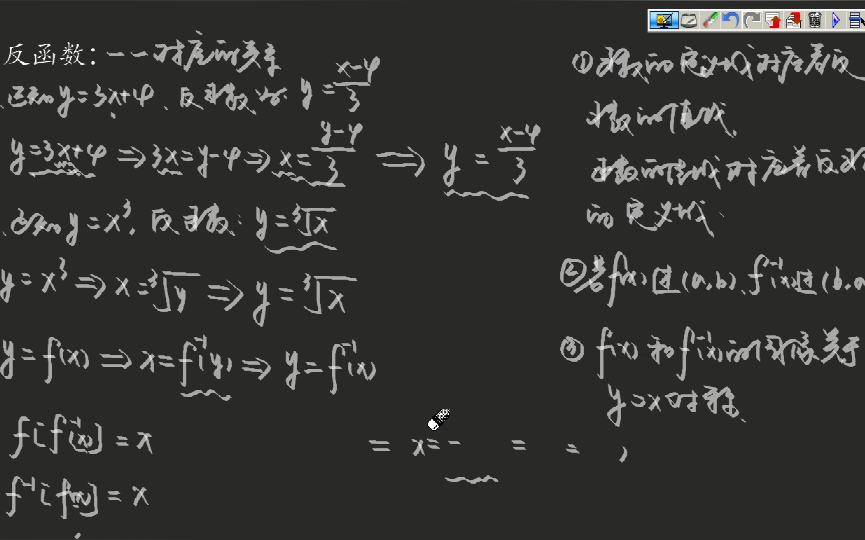 反函数: 一一对应的关系
已知 y=3x+4, 反函数为 y = (x-4)/3
y=3x+4 ⇒ 3x=y-4 ⇒ x=(y-4)/3 ⇒ y = (x-4)/3
已知 y=x³, 反函数: y=∛x
y=x³ ⇒ x=∛y ⇒ y=∛x
y=f(x) ⇒ x=f⁻¹(y) ⇒ y=f⁻¹(x)
f[f⁻¹(x)]=x
f⁻¹[f(x)]=x
= x=- = = ,
① 函数的定义域对应着反
函数的值域.
函数的值域对应着反函
的定义域.
② 若f(x)过(a,b), f⁻¹(x)过(b,a
③ f(x)和f⁻¹(x)的图像关于
y=x对称.